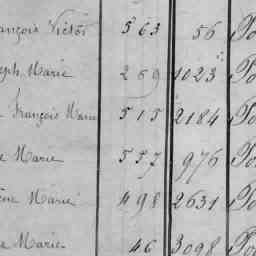 ançois Victor 563 56 Po
eph Marie 269 1023 Po
François Marie 515 2184 Po
e Marie 557 976 Po
Marie 498 2631 Po
e Marie 46 3098 Po